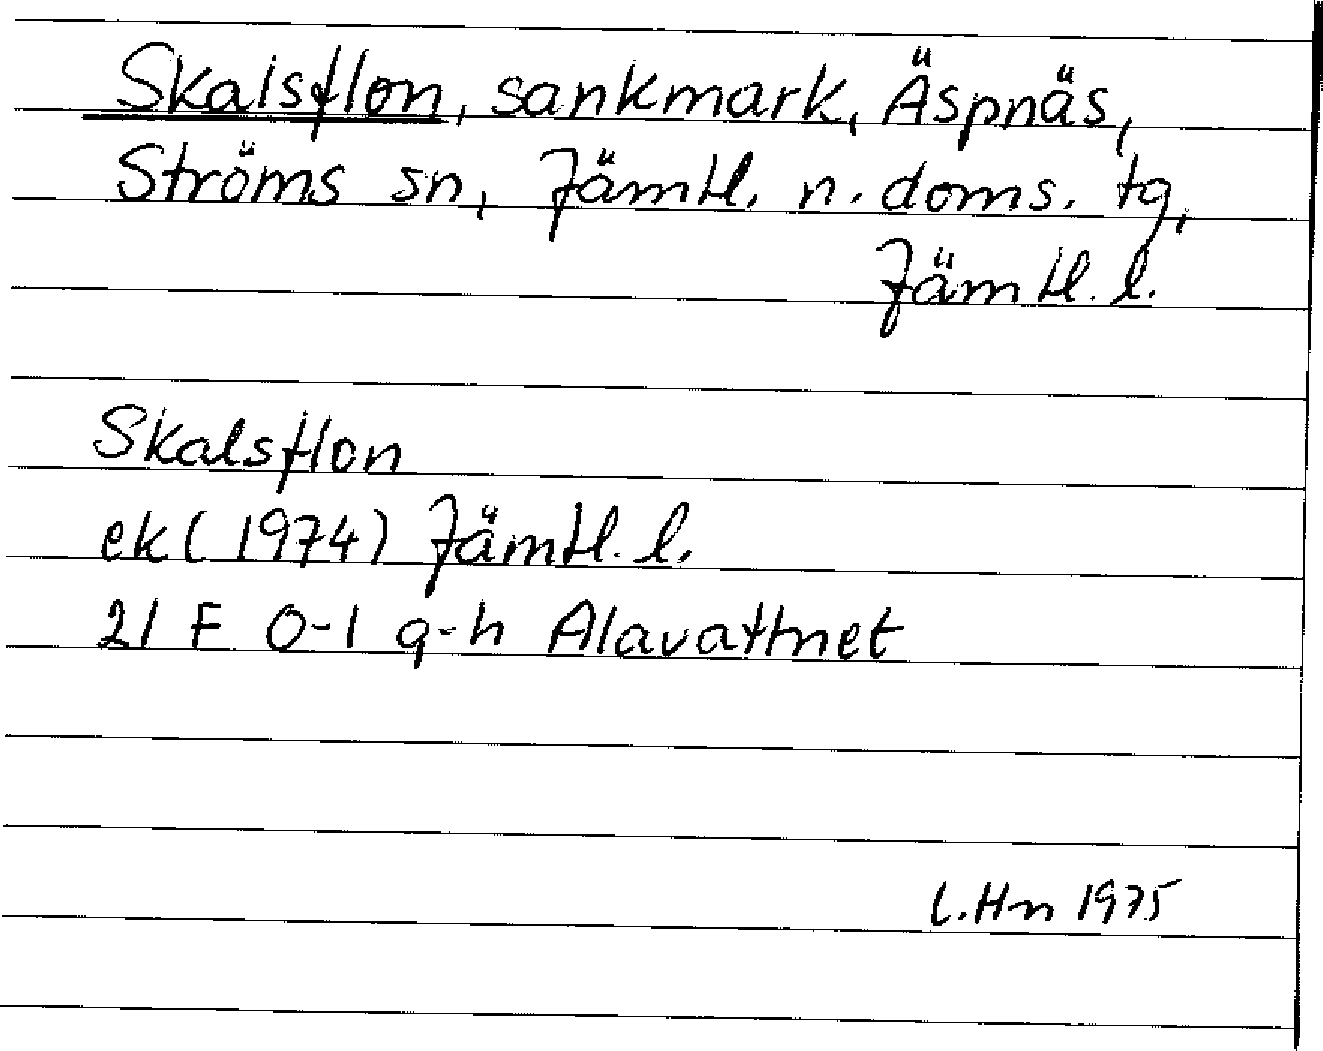 Skalsflon, sankmark, Äspnäs,
Ströms sn, Jämtl. n. doms. tg,
Jämtl. l.
Skalsflon
ek (1974) Jämtl. l.
21 F 0-1 g-h Alavattnet
L.Hn 1975